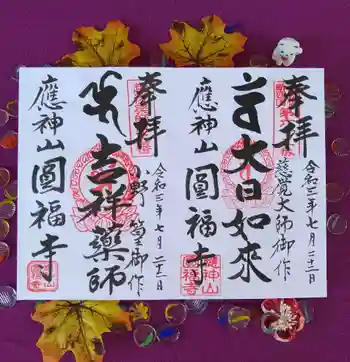 奉拝
慈覚大師御作
令和三年七月二十二日
大日如來
應神山
圓福寺
奉拝
小野篁御作
令和三年七月二十二日
吉祥薬師
應神山
圓福寺